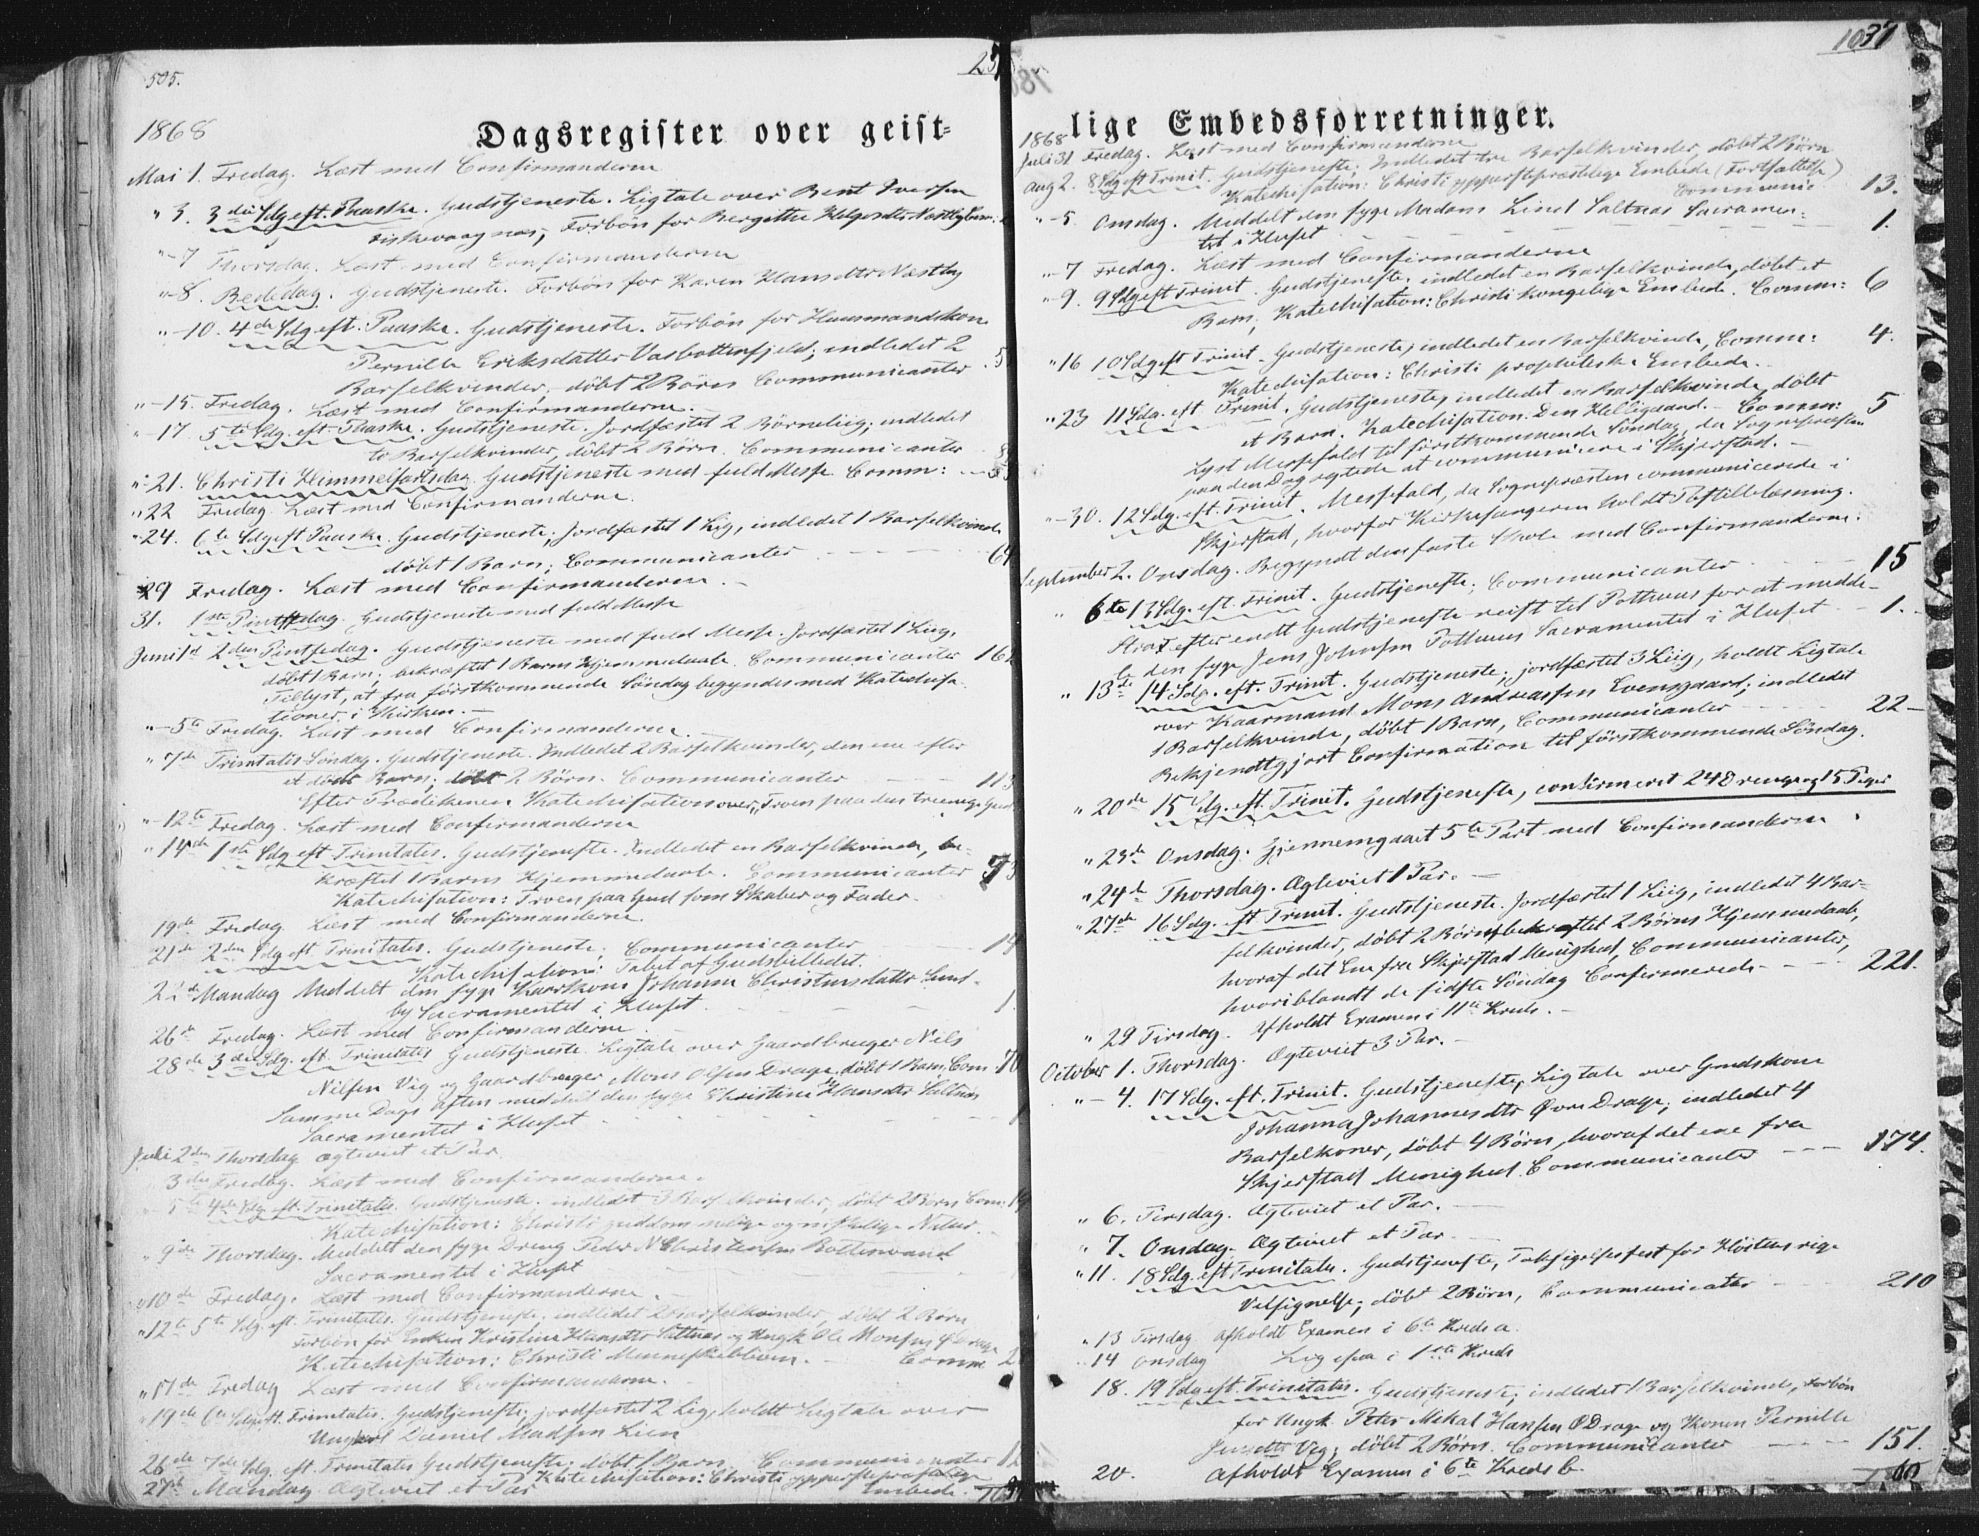 505.
1868
Dagsregister over geist=
Mai 1. Fredag. Læst med Confirmanderne
" 3. 3die Sdg eft. Paaske. Gudstjeneste. Ligtale over Bent Iversen
Fiskevaagnæs; Forbön for Bergitte Helgesdtr
"-7 Thorsdag. Læst med Confirmanderne
"-8. Bededag. Gudstjeneste. Forbön for Karen Hansdtr Næstby
"-10. 4de Sdg eft. Paaske. Gudstjeneste. Forbön for Huusmandskone
Pernille Eriksdatter Vasbottenfjeld; indledet 2
Barselkvinder, döbt 2 Börn Communicanter 5
"-15. Fredag. Læst med Confirmanderne.
"-17. 5te Sdg. eft. Paaske. Gudstjeneste. Jordfæstet 2 Börneliig; indledet
to Barselkvinder, döbt 2 Börn. Communicanter
"-21. Christi Himmelfartsdag. Gudstjeneste med fuld Messe. Comm:
"22 Fredag. Læst med Confirmanderne.
"24. 6te Sdg eft Paaske. Gudstjeneste; Jordfæstet 1 Lig, indledet 1 Barselkvinde
döbt 1 Barn; Communicanter 64
29 Fredag. Læst med Confirmanderne.
31. 1ste Pintsedag. Gudstjeneste med fuld Messe
Juni 1st 2den Pintsedag. Gudstjeneste med fuld Messe. Jordfæstet 1 Liig,
döbt 1 Barn; bekræftet 1 Barns Hjemmedaab. Communicanter
Tillyst, at fra förstkommende Söndag begyndes med Katechisa-
tioner i Kirken.
"-5te Fredag. Læst med Confirmanderne.
" 7de Trinitatis Söndag. Gudstjeneste. Indledet 2 Barselkvinder, den ene efter
et dödt Barn; döbt 2 Börn. Communicanter 113
Efter Prædikenen Katechisation over: Troen paa den treenige Gud.
"-12te Fredag. Læst med Confirmanderne
" 14de 1ste Sdg eft Trinitatis. Gudstjeneste. Indledet en Barselkvinde, be-
kræftet 1 Barns Hjemmedaab. Communicanter
Katechisation: Troen paa Gud som Skaber og Fader.
19de Fredag Læst med Confirmanderne.
21de 2den Sdg eft Trinitatis. Gudstjeneste; Communicanter
Katechisation: Tabet af Gudsbilledet.
22de Mandag Meddelt den syge Kaarkone Johanna Christensdatter Lund-
by Sacramentet i Huset 1
26de Fredag. Læst med Confirmanderne.
28de 3die Sdg. eft. Trinitatis Gudstjeneste. Ligtale over Gaardbruger Nils
Nilsen Vig og Gaardbruger Mons Olsen Drage, döbt 1 Barn, Com. 70
Samme Dags Aften meddelt den syge Christine Hansdtr Saltnæs
Sacramentet i Huset 1
Juli 2den Thorsdag Ægteviet et Par.
3die Fredag. Læst med Confirmanderne.
5te 4de Sdg. eft. Trinitatis. Gudstjeneste. indledet 3 Barselkvinder, döbt 2 Börn Com:
Katechisation: Christi guddommelige og menneskelige Natur.
" 9de Thorsdag. Meddelt den syge Dreng Peder N Christensen Bottenvand
Sacramentet i Huset
"10de Fredag. Læst med Confirmanderne.
"12te 5te Sdg. eft. Trinitatis. Gudstjeneste; indledet 2 Barselkvinder, döbt 2 Börn
Forbön for Enken Kristine Hansdtr Saltnæs og Ungk Ole Monsen Drage
Katechisation: Christi Menneskeblivn. Comm
"17de Fredag Læst med Confirmanderne.
"19de 6te Sdg eft. Trinitatis. Gudstjeneste; jordfæstet 2 Lig, holdt Ligtale over
Ungkarl Daniel Madsen Lien
26de 7de Sdg. eft. Trinitatis Gudstjeneste; döbt 1 Barn. Communicanter
Katechisation: Christi ypperstepræstelige
27de Mandag Ægteviet et Par Embede.
1037
lige Embedsforretninger.
1868
Juli 31 Fredag. Læst med Confirmanderne
Aug 2. 8 Sdg eft Trinit. Gudstjeneste; Indledet tre Barselkvinder, döbt 2 Börn
Katechisation: Christi ypperstepræstelige Embede (Fortsættelse)
Communic 13.
"-5. Onsdag. Meddelt den syge Madam Lind Saltnæs Sacramen-
tet i Huset 1.
"-7 Fredag. Læst med Confirmanderne
"-9. 9 Sdg eft Trinit. Gudstjeneste. indledet en Barselkvinde, döbt et
Barn; Katechisation: Christi kongelige Embede. Comm: 6
"16 10 Sdg eft Trinit. Gudstjeneste; indledet en Barselkvinde, Comm: 4.
Katechisation: Christi prophetiske Embede.
"23 11 Sdg. eft. Trinit. Gudstjeneste; indledet en Barselkvinde, döbt
et Barn. Katechisation: Den Helligaand. Comm: 5
Lyst Messefald til förstkommende Söndag, da Sognepræsten
paa den Dag agtede at communicere i Skjerstad.
"-30. 12 Sdg. eft. Trinit. Messefald, da Sognepræsten communicerede i
Skjerstad, hvorfor Kirkesangeren holdt Postillelæsning.
September 2. Onsdag. Begyndt den faste Skole med Confirmanderne.
" 6te 13 Sdg. eft. Trinit. Gudstjeneste; Communicanter 15
Strax efter endt Gudstjeneste reist til Pothuus for at medde-
le den syge Jens Johnsen Pothuus Sacramentet i Huset 1.
" 13te 14 Sdg. eft. Trinit. Gudstjeneste; jordfæstet 3 Liig, holdt Ligtale
over Kaarmand Mons Andreassen Evensgaard; indledet
1 Barselkvinde, döbt 1 Barn, Communicanter 22
Bekjendtgjort Confirmation til förstkommende Söndag.
" 20de 15 Sdg. eft. Trinit. Gudstjeneste, confirmeret 24 Drenge og 15 Piger
" 23de Onsdag. Gjennemgaaet 5te Part med Confirmanderne
" 24de Thorsdag. Ægteviet 1 Par.
" 27de 16 Sdg. eft Trinit. Gudstjeneste. Jordfæstet 1 Liig, indledet 4 Bar-
selkvinder, döbt 2 Börn, bekræftet 2 Börns Hjemmedaab,
hvoraf det Ene fra Skjerstad Menighed, Communicanter,
hvoriblandt de sidste Söndag Confirmerede 221.
" 29 Tirsdag. Afholdt Examen i 11te Kreds.
October 1. Thorsdag. Ægteviet 3 Par.
"- 4. 17 Sdg. eft. Trinit. Gudstjeneste, Ligtale over Gmdskone
Johanna Johannesdtr Övre Drage; indledet 4
Barselkoner, döbt 4 Börn, hvoraf det ene fra
Skjerstad Menighed. Communicanter 174.
" 6. Tirsdag. Ægteviet et Par.
" 7. Onsdag. Ægteviet et Par.
" 11. 18 Sdg. eft Trinitatis. Gudstjeneste, Taksigelsesfest for Höstens rige
Velsignelse; döbt 2 Börn, Communicanter 210
" 13 Tirsdag afholdt Examen i 6te Kreds a.
" 14 Onsdag Ligesaa i 1ste Kreds
18. 19 Sdg eft. Trinitatis. Gudstjeneste; indledet 1 Barselkvinde, Forbön
for Ungk. Peter Mikal Hansen ÖDrage og Konen Pernille
Jensdtr Vig; döbt 2 Börn. Communicanter 151.
20. Afholdt Examen i 6te Kreds b.